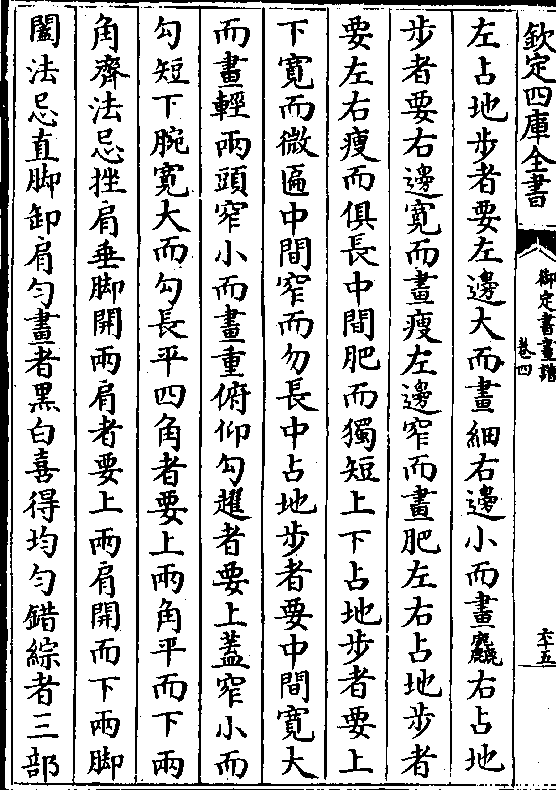 欽定四庫全書
御定書畫譜
卷四
六十五
左占地步者要左邊大而畫細右邊小而畫麤右占地
步者要右邊寛而畫瘦左邊窄而畫肥左右占地步者
要左右瘦而俱長中間肥而獨短上下占地步者要上
下寛而微匾中間窄而勿長中占地步者要中間寛大
而畫輕兩頭窄小而畫重俯仰勾趯者要上蓋窄小而
勾短下腕寛大而勾長平四角者要上兩角平而下兩
角齊法忌挫肩垂脚開兩肩者要上兩肩開而下兩脚
闔法忌直脚卸肩勻畫者黑白喜得均勻錯綜者三部